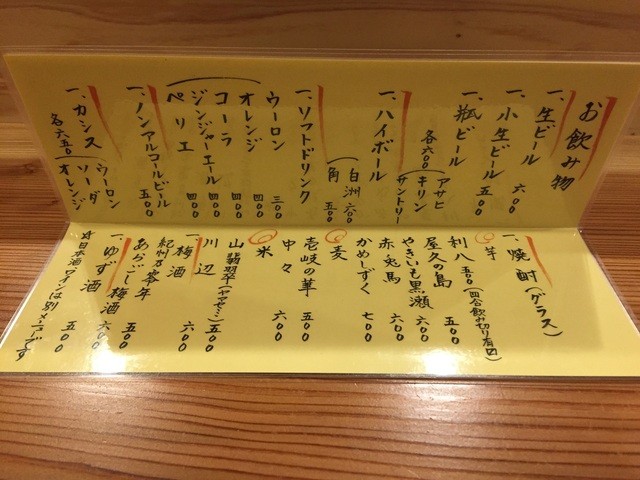 お飲み物
一、生ビール 六〇〇
一、小生ビール 五〇〇
一、瓶ビール 各六〇〇
アサヒ
キリン
サントリー
一、ハイボール
白洲 六〇〇
角 五〇〇
一、ソフトドリンク
ウーロン 三〇〇
オレンジ 四〇〇
コーラ 四〇〇
ジンジャーエール 四〇〇
ペリエ 四〇〇
一、ノンアルコールビール 五〇〇
一、カシス 各六五〇
ウーロン
ソーダ
オレンジ
一、焼酎(グラス)
芋
利八 五〇〇(四合飲み切り有)
屋久の島 五〇〇
やきいも黒瀬 六〇〇
赤兎馬 六〇〇
かめしずく 七〇〇
麦
壱岐の華 五〇〇
中々 六〇〇
米
山翡翠
川辺 五〇〇
一、梅酒
紀州乃零年 六〇〇
あらごし梅酒 五〇〇
一、ゆず酒 六〇〇
日本酒ワインは別メニューです